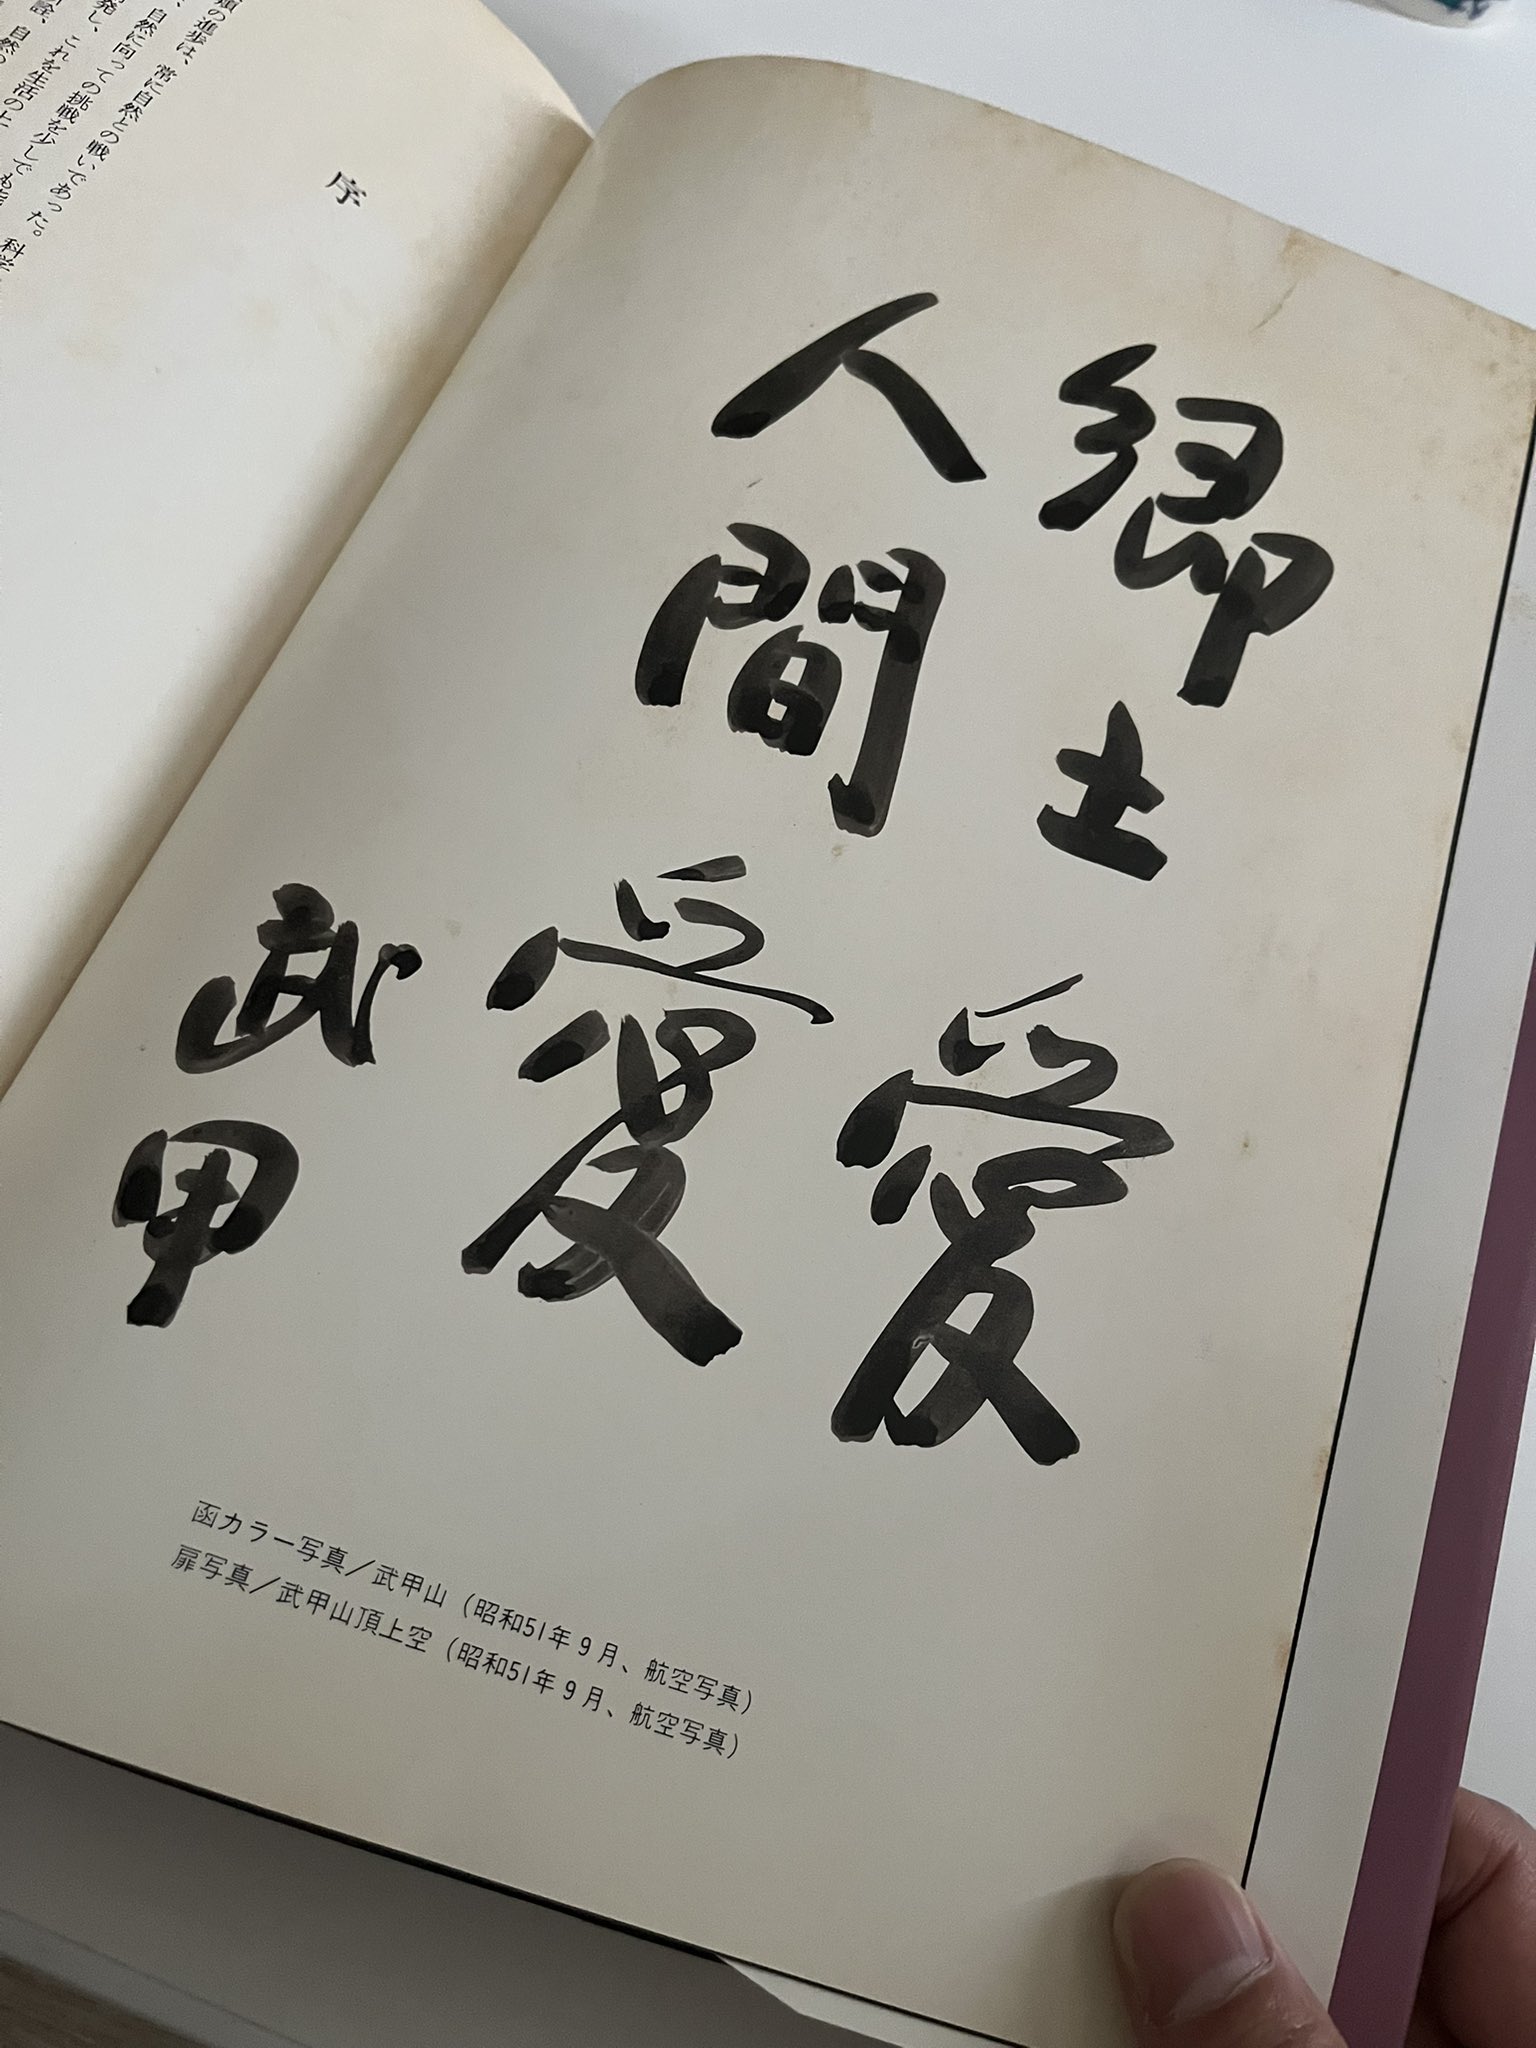 郷土愛
人間愛
武甲
函カラー写真／武甲山（昭和51年９月、航空写真）
扉写真／武甲山頂上空（昭和51年９月、航空写真）
序
の進歩は、常に自然との戦いであった。科学
、自然に向っての挑戦を少しでも
発し、これを生活の上